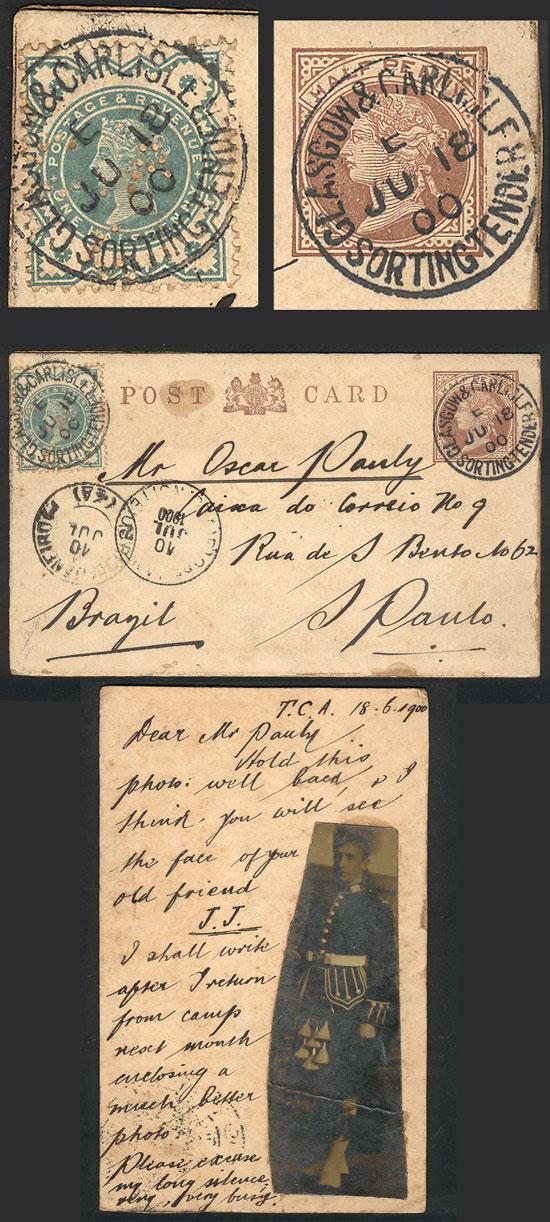 GLASGOW & CARLISLE SORTING TENDER
E
JU 18
00
POSTAGE & REVENUE
HALF PENNY
GLASGOW & CARLISLE SORTING TENDER
E
JU 18
00
POST CARD
GLASGOW & CARLISLE SORTING TENDER
E
JU 18
00
GLASGOW & CARLISLE SORTING TENDER
E
JU 18
00
Mr Oscar Pauly
Caixa do Correio No 9
Rua de S Bento No 62
S Paulo.
Brazil
10
JUL
10
JUL
1900
T.C.A. 18-6-1900
Dear Mr Pauly
Hold this
photo: well back, & I
think you will see
the face of your
old friend
J.J.
I shall write
after I return
from camp
next month
enclosing a
much better
photo
Please excuse
my long silence.
very, very busy.